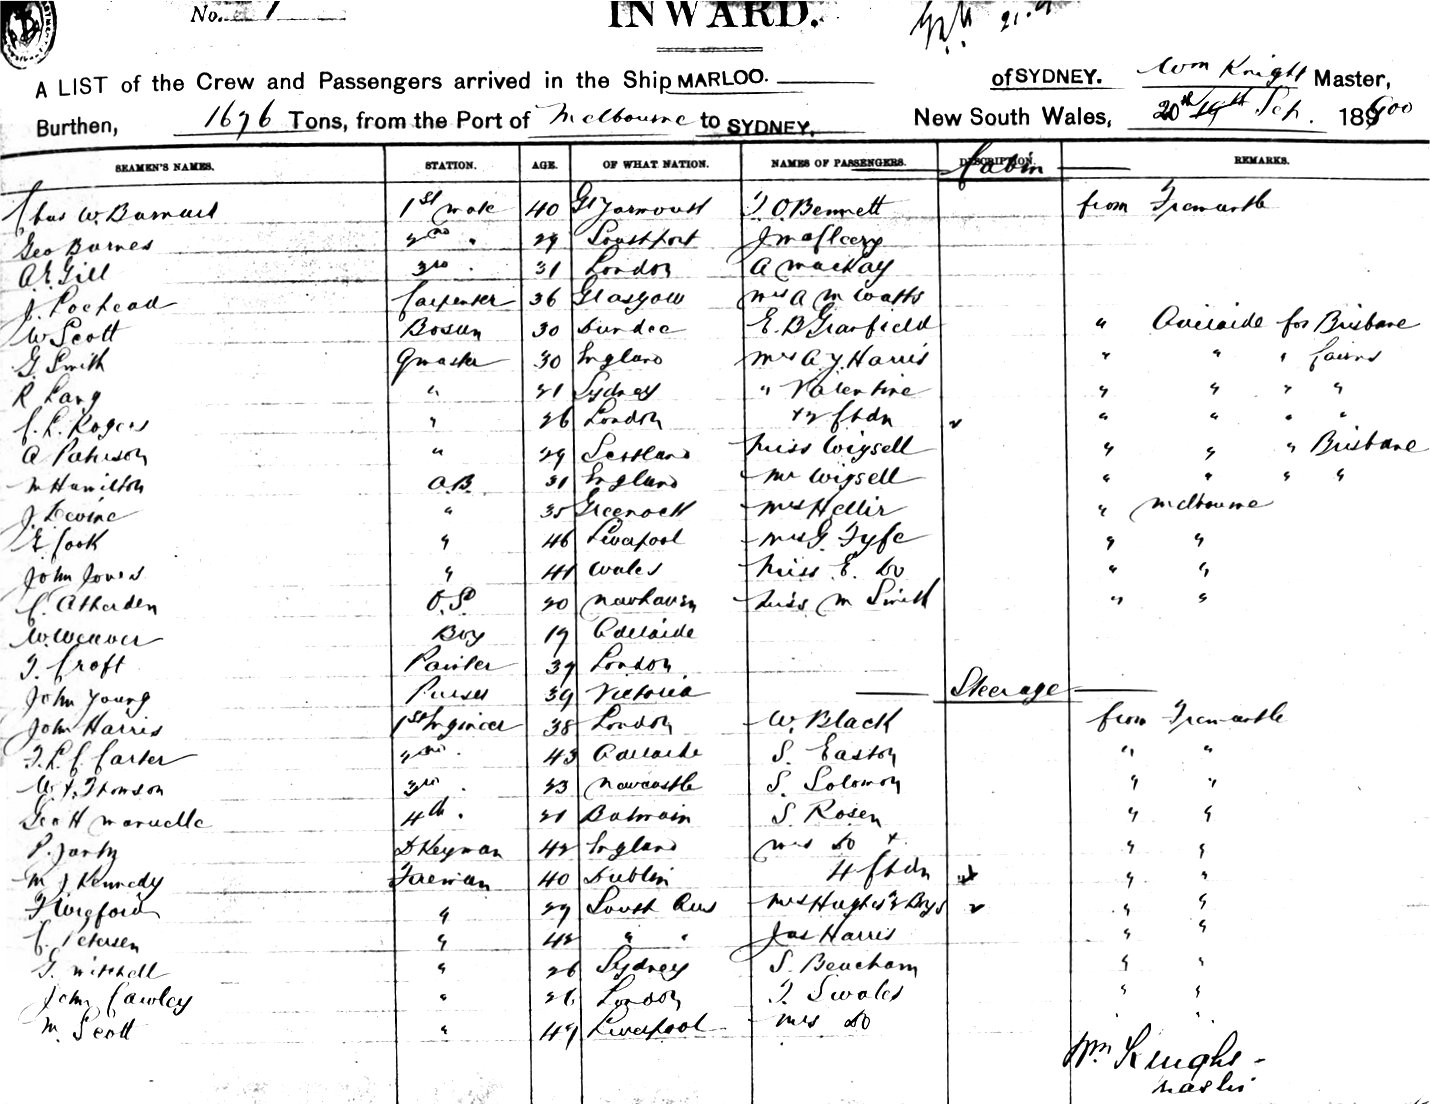 No. 1
INWARD.
A LIST of the Crew and Passengers arrived in the Ship MARLOO. of SYDNEY. Wm Knight Master,
Burthen, 1696 Tons, from the Port of Melbourne to SYDNEY, New South Wales, 20th 19th Sep. 1900
SEAMEN'S NAMES. STATION. AGE. OF WHAT NATION. NAMES OF PASSENGERS. DESCRIPTION. REMARKS.
Cabin
Chas W. Barnard 1st mate 40 Gt Yarmouth T. O Bennett from Fremantle
Geo Barnes 2nd " 29 Southport
A. E. Gill 3rd . 31 London A MacKay
J. Lochead Carpenter 36 Glasgow Mrs A M Watts
W Scott Bosun 30 Dundee E. B Granfield " Adelaide for Brisbane
G. Smith Qmaster 30 England Mrs A. Y Harris " " " Cairns
R Lang " 21 Sydney " Valentine " " " "
C. L. Rogers " 26 London + 2 Chdn " " " "
A Paterson " 29 Scotland Miss Wigsell " " " Brisbane
M Hamilton A.B. 31 England Mr Wigsell " " " "
J. Devine " 35 Greenock Mrs Hellir " Melbourne
E Cook " 46 Liverpool Mrs G. Fyfe " "
John Jones " 41 Wales Miss E. Do " "
C. Atherden O.S. 20 Newhaven Miss M Smith " "
W. Weaver Boy 19 Adelaide
T. Croft Painter 39 London
John Young Purser 39 Victoria
Steerage
John Harris 1st Engineer 38 London W. Black from Fremantle
T. L. C. Carter 2nd . 43 Adelaide S. Easton " "
W. Y. Thomson 3rd . 23 Newcastle S. Solomon " "
Geo H Manuelle 4th . 21 Balmain S. Rosen " "
P. Jantz D Keyman 42 England Mrs Do + " "
M J Kennedy Fireman 40 Dublin 4 Chdn " "
F Wigford " 29 South Aus Mrs Hughes & 2 Boys " "
C. Petersen " 42 " " Jas Harris " "
G. Mitchell " 26 Sydney S. Beucham " "
John Cawley " 26 London T. Swales " "
M. Scott " 49 Liverpool Mrs Do " "
Wm Knight
Master